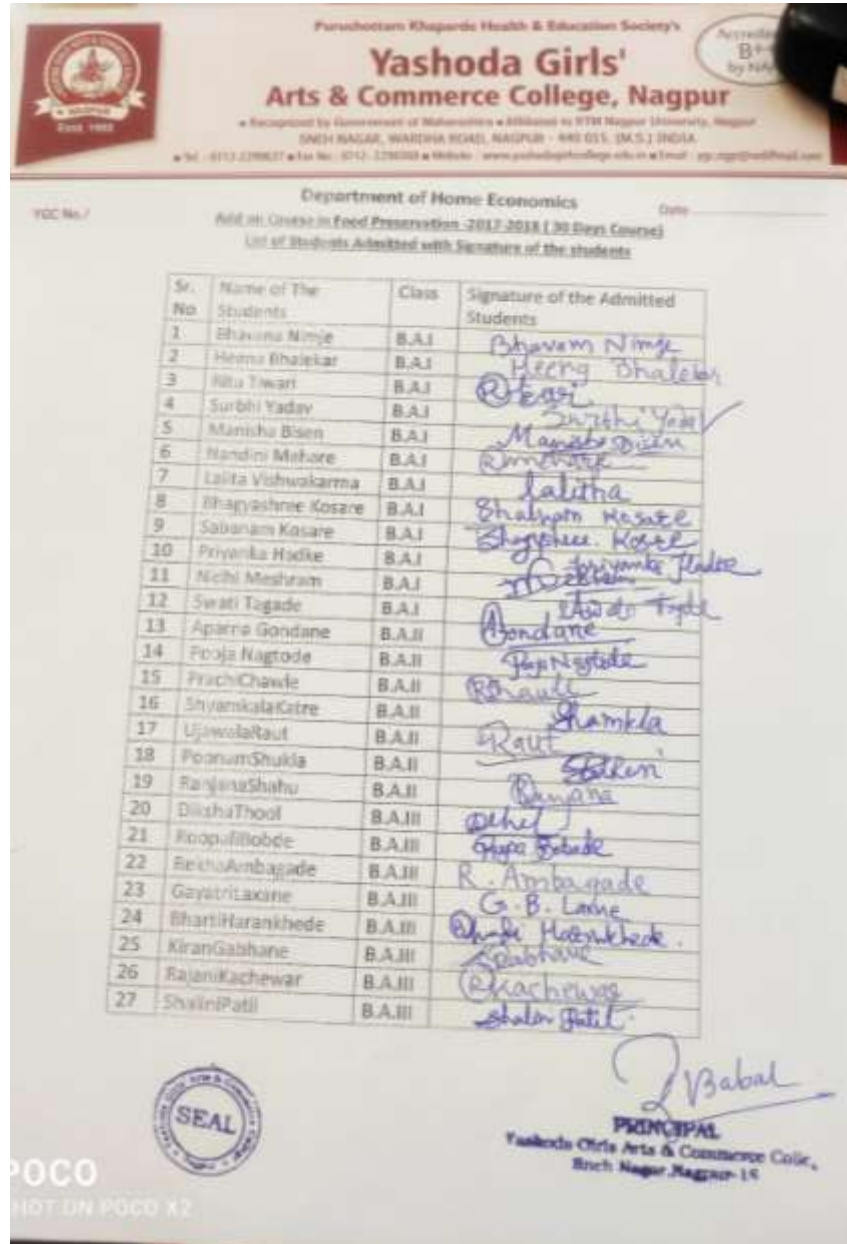 Purushottam Khaparde Health & Education Society's
Accredited
B++
by NAAC
Yashoda Girls'
Arts & Commerce College, Nagpur
NAGPUR
Estd. 1992
• Recognized by Government of Maharashtra • Affiliated to RTM Nagpur University, Nagpur
SNEH NAGAR, WARDHA ROAD, NAGPUR - 440 015. (M.S.) INDIA
Department of Home Economics
YGC No./
Date
Add on Course in Food Preservation -2017-2018 ( 30 Days Course)
List of Students Admitted with Signature of the students
Sr. No Name of The Students Class Signature of the Admitted Students
1 Bhavana Nimje B.A.I Bhavam Nimje
2 Heena Bhalekar B.A.I Heena Bhalekar
3 Ritu Tiwari B.A.I
4 Surbhi Yadav B.A.I Surbhi Yadav
5 Manisha Bisen B.A.I Manisha Bisen
6 Nandini Mehare B.A.I
7 Lalita Vishwakarma B.A.I Lalitha
8 Bhagyashree Kosare B.A.I Kosare
9 Sabanam Kosare B.A.I
10 Priyanka Hadke B.A.I Priyanka Hadke
11 Nidhi Meshram B.A.I
12 Swati Tagade B.A.I
13 Aparna Gondane B.A.II
14 Pooja Nagtode B.A.II
15 PrachiChawle B.A.II
16 ShyamkalaKatre B.A.II Shamkla
17 UjawalaRaut B.A.II Raut
18 PoonamShukla B.A.II
19 RanjanaShahu B.A.II Ranjana
20 DikshaThool B.A.III
21 RoopaliBobde B.A.III
22 RekhaAmbagade B.A.III R. Ambagade
23 GayatriLaxane B.A.III G. B.
24 BhartiHarankhede B.A.III
25 KiranGabhane B.A.III
26 RajaniKachewar B.A.III RKachewar
27 ShaliniPatil B.A.III Patil
SEAL
PRINCIPAL
Yashoda Girls Arts & Commerce Colle,
Sneh Nagar, Nagpur-15
POCO
SHOT ON POCO X2